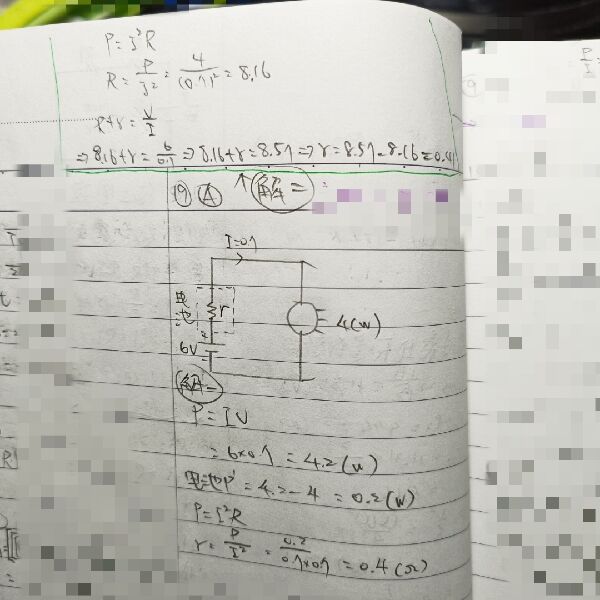 P=I²R
R=P/I²=4/(0.7)²=8.16
R+r=V/I
⇒8.16+r=6/0.7⇒8.16+r=8.57⇒r=8.57-8.16=0.41
⑲ Ⓐ ↑ 解=
I=0.7
電池 r
4(W)
6V
解=
P=IV
=6×0.7=4.2(W)
電池P'=4.2-4=0.2(W)
P=I²R
r=P/I²=0.2/0.7×0.7=0.4(Ω)